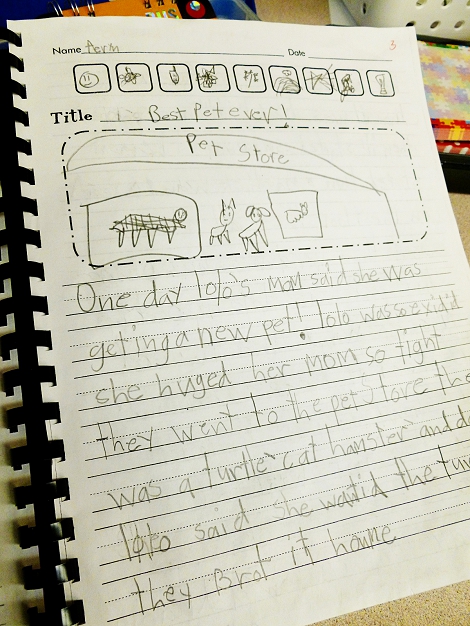 Name
Date
3
Title Best Pet ever!
Pet Store
One day lolo's Mom said she was
geting a new pet! lolo was so exidid
she huged her MOM so tight
they went to the pet Store the
was a turtle cat hamster and d
lolo said she watid the tur
they Brot it home